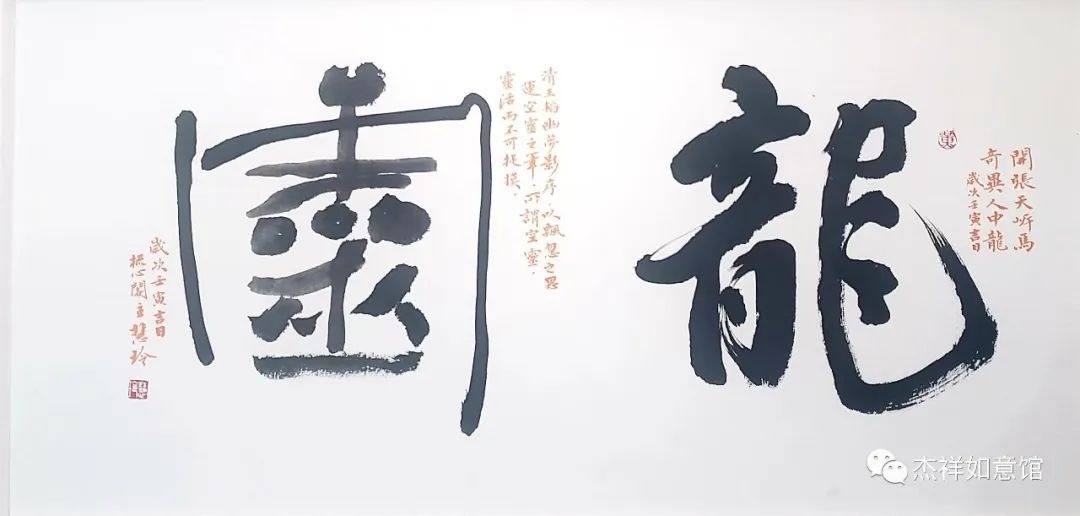 龍
開張天岸馬
奇異人中龍
歲次壬寅吉日
靈
清王韜幽夢影序，以飄忽之思
運空靈之筆，所謂空靈，
靈活而不可捉摸、
歲次壬寅吉日
閣主慧玲
杰祥如意馆